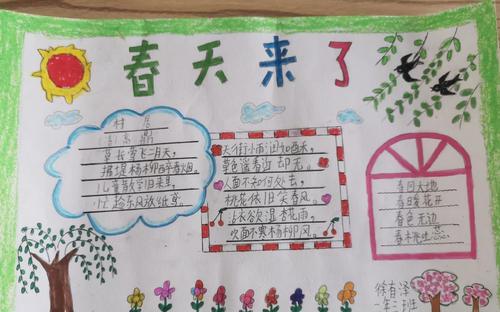 春天来了
村居
高鼎
草长莺飞二月天，
拂堤杨柳醉春烟。
儿童散学归来早，
忙趁东风放纸鸢。
天街小雨润如酥，
草色遥看近却无。
人面不知何处去，
桃花依旧笑春风。
沾衣欲湿杏花雨，
吹面不寒杨柳风。
春回大地
春暖花开
春色无边
春
徐有泽
一年二班